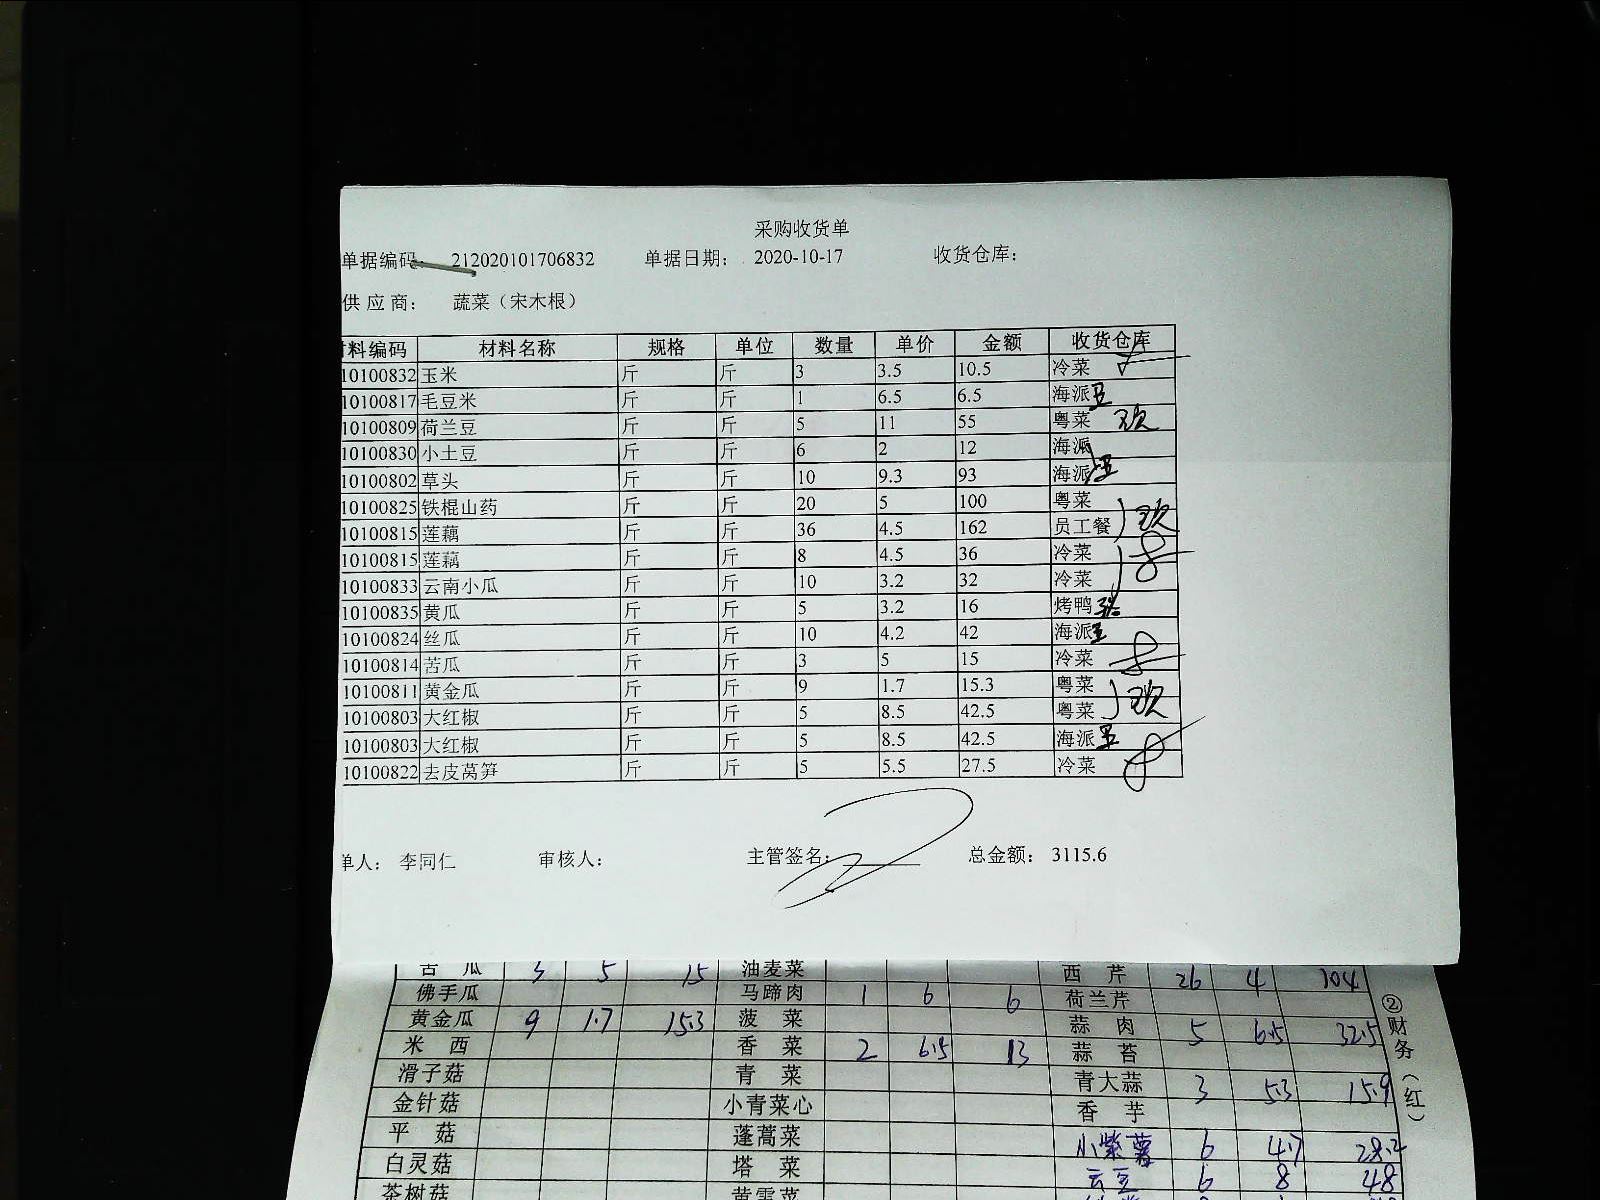 采购收货单
单据编码: 212020101706832 单据日期: 2020-10-17 收货仓库:
供应商: 蔬菜（宋木根）
料编码 材料名称 规格 单位 数量 单价 金额 收货仓库
10100832 玉米 斤 斤 3 3.5 10.5 冷菜
10100817 毛豆米 斤 斤 1 6.5 6.5 海派
10100809 荷兰豆 斤 斤 5 11 55 粤菜
10100830 小土豆 斤 斤 6 2 12 海派
10100802 草头 斤 斤 10 9.3 93 海派
10100825 铁棍山药 斤 斤 20 5 100 粤菜
10100815 莲藕 斤 斤 36 4.5 162 员工餐
10100815 莲藕 斤 斤 8 4.5 36 冷菜
10100833 云南小瓜 斤 斤 10 3.2 32 冷菜
10100835 黄瓜 斤 斤 5 3.2 16 烤鸭
10100824 丝瓜 斤 斤 10 4.2 42 海派
10100814 苦瓜 斤 斤 3 5 15 冷菜
10100811 黄金瓜 斤 斤 9 1.7 15.3 粤菜
10100803 大红椒 斤 斤 5 8.5 42.5 粤菜
10100803 大红椒 斤 斤 5 8.5 42.5 海派
10100822 去皮莴笋 斤 斤 5 5.5 27.5 冷菜
单人: 李同仁 审核人: 主管签名: 总金额: 3115.6
苦瓜 3 5 15 油麦菜 西芹 26 4 104
佛手瓜 马蹄肉 1 6 6 荷兰芹
黄金瓜 9 1.7 15.3 菠菜 蒜肉 5 6.5 32.5
米西 香菜 2 6.5 13 蒜苔
滑子菇 青菜 青大蒜 3 5.3 15.9
金针菇 小青菜心 香芋
平菇 蓬蒿菜 小紫薯 6 4.7 28.2
白灵菇 塔菜 云豆 6 8 48
茶树菇 黄雪菜
②财务（红）